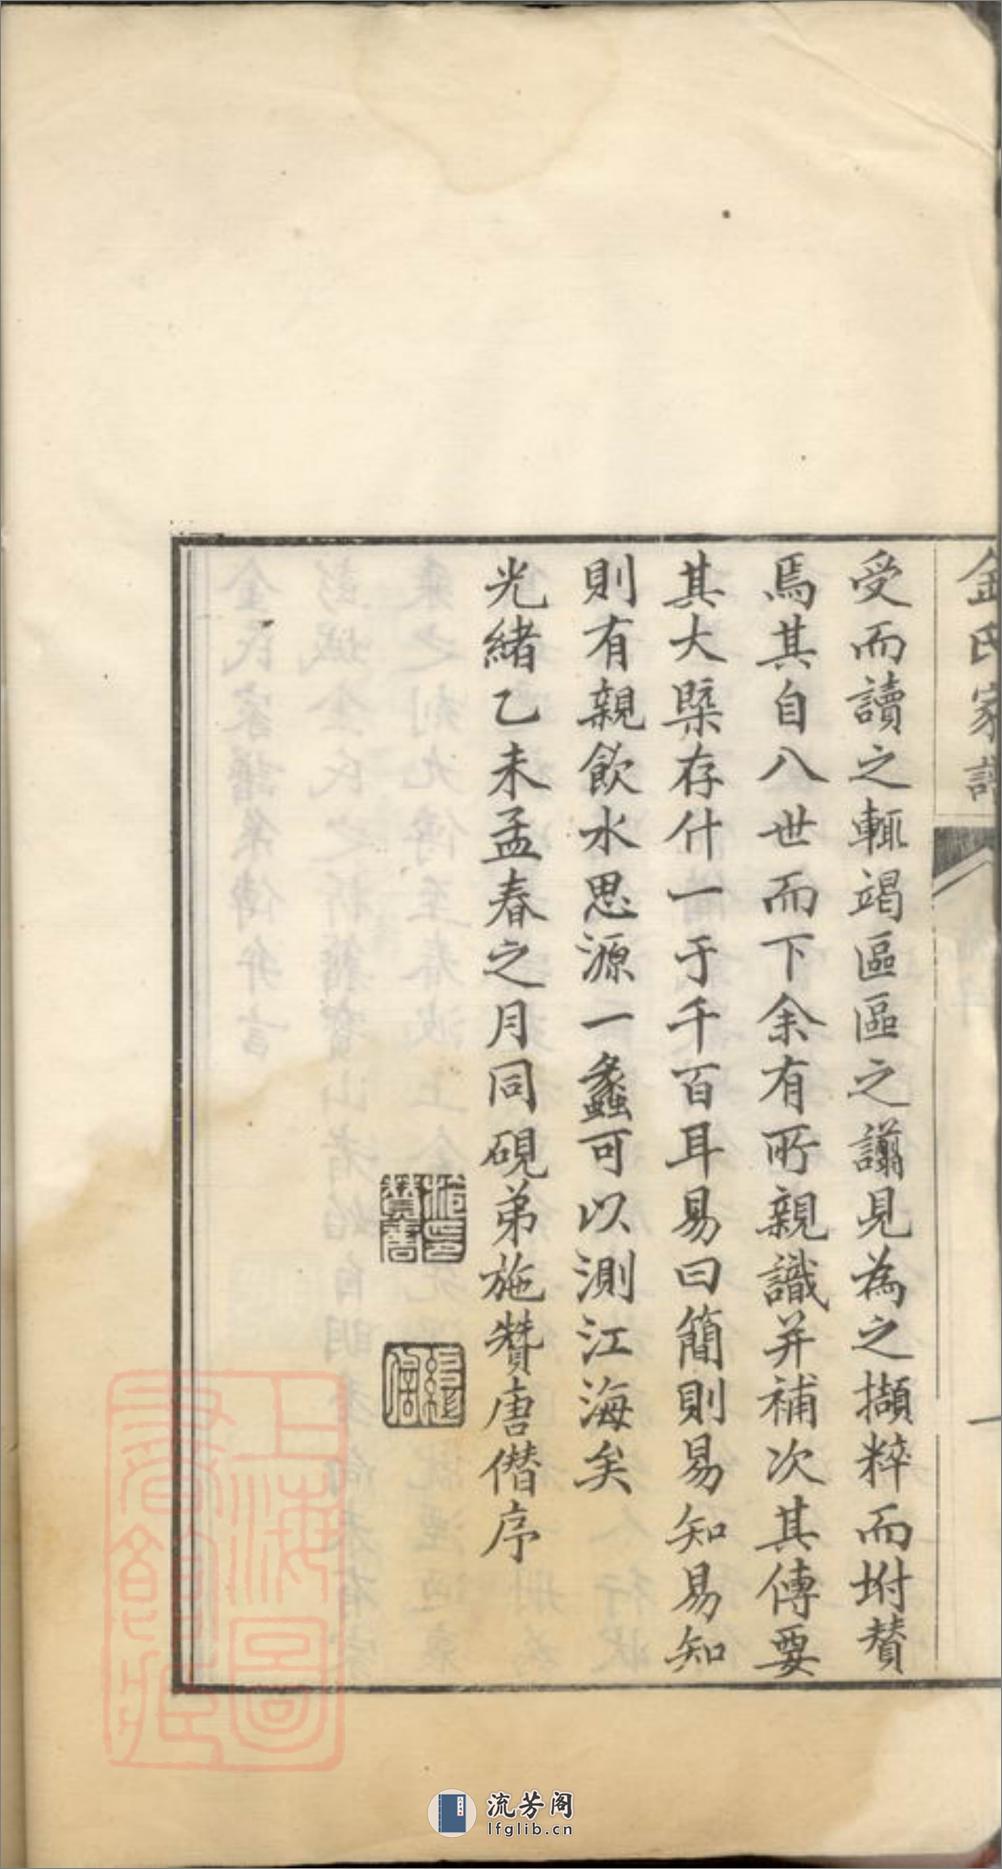 金氏家譜
一
受而讀之輒竭區區之譾見為之擷粹而坿贊
焉其自八世而下余有所親識并補次其傳要
其大槩存什一于千百耳易曰簡則易知易知
則有親飲水思源一蠡可以測江海矣
光緒乙未孟春之月同硯弟施贊唐僭序
上海圖書館藏
流芳阁
lfglib.cn